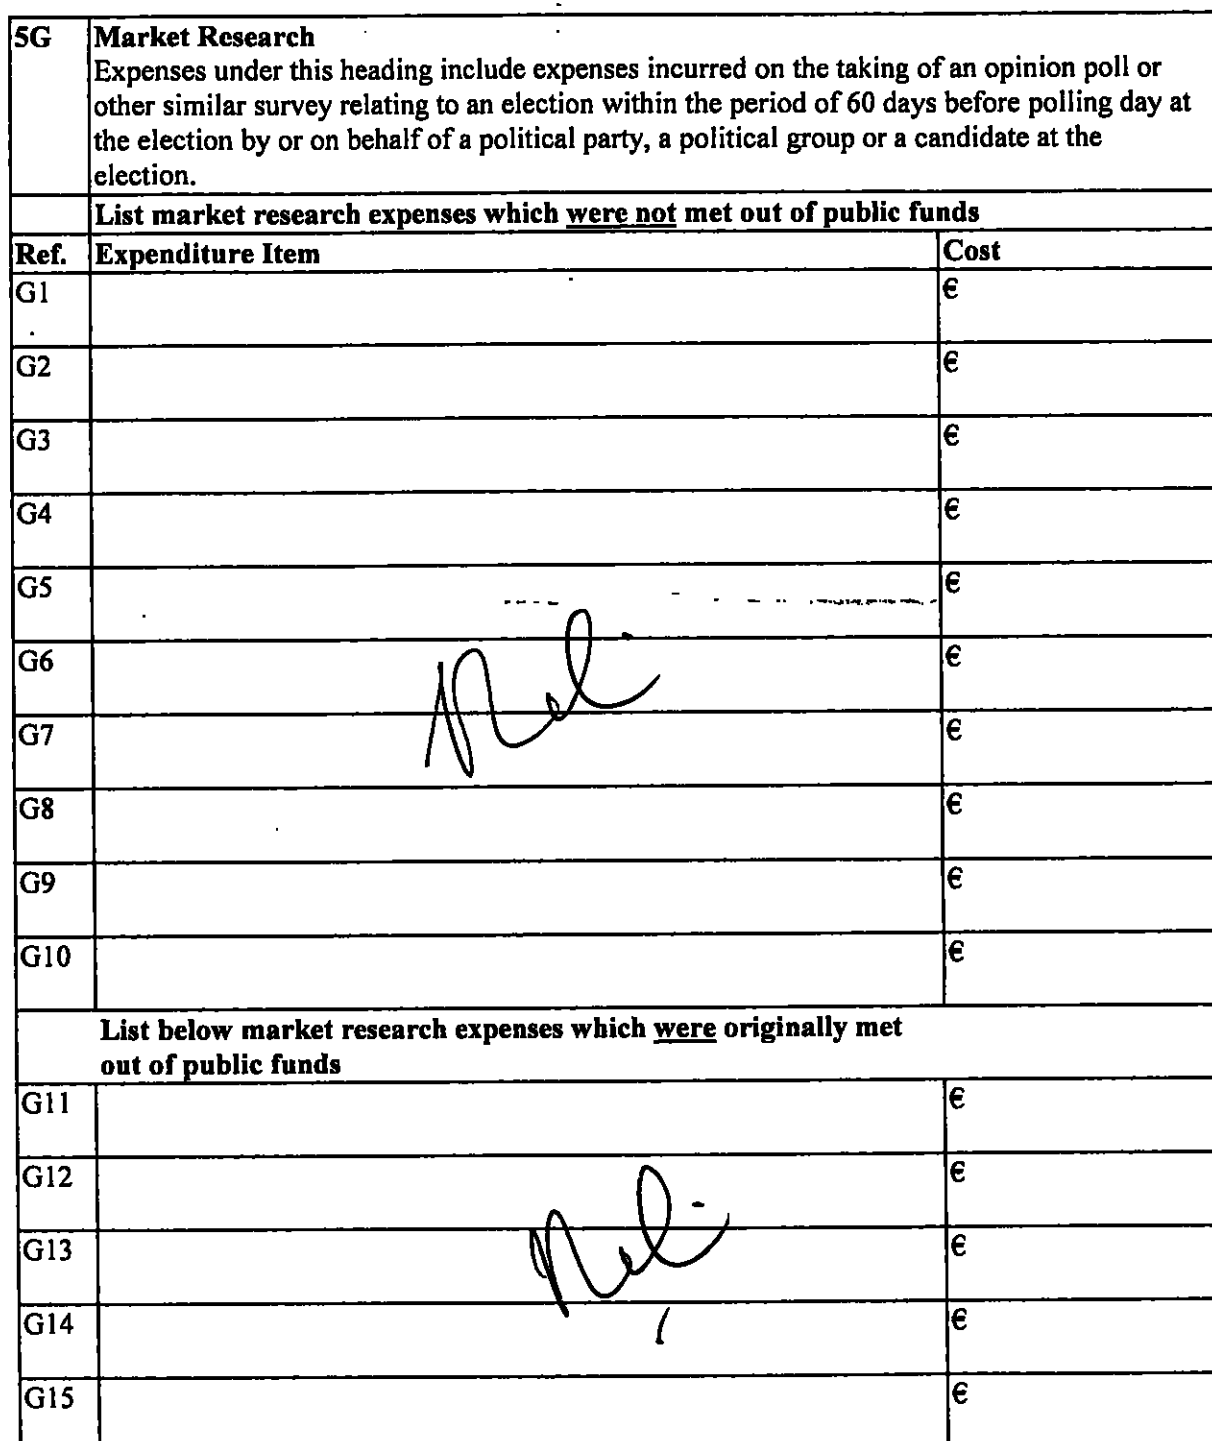 5G Market Research
Expenses under this heading include expenses incurred on the taking of an opinion poll or
other similar survey relating to an election within the period of 60 days before polling day at
the election by or on behalf of a political party, a political group or a candidate at the
election.
List market research expenses which were not met out of public funds
Ref. Expenditure Item Cost
G1 €
G2 €
G3 €
G4 €
G5 €
G6 €
G7 €
G8 €
G9 €
G10 €
List below market research expenses which were originally met
out of public funds
G11 €
G12 €
G13 €
G14 €
G15 €